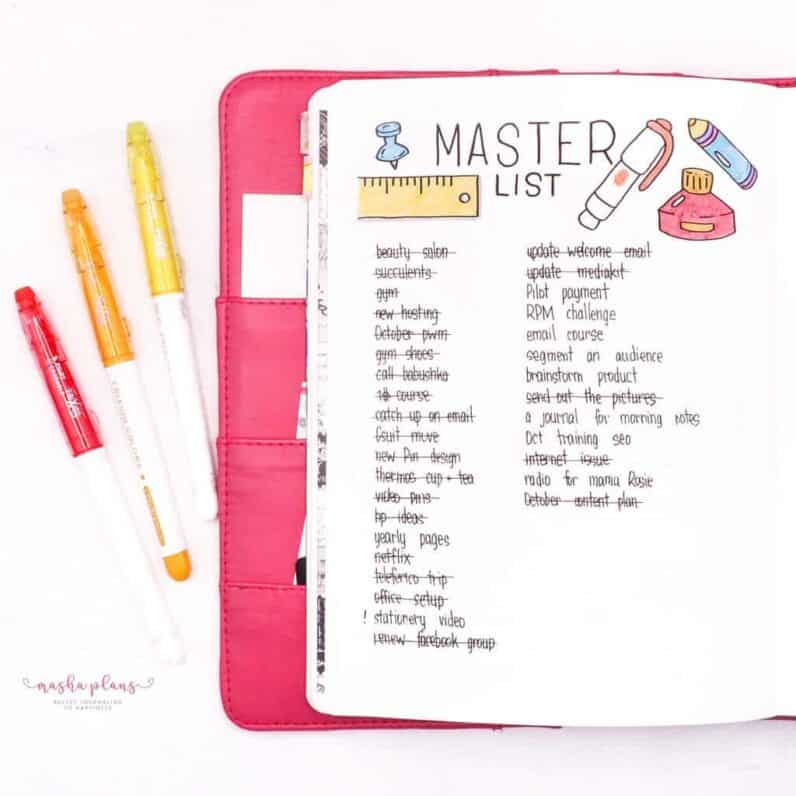 MASTER
LIST
beauty salon
succulents
gym
new hosting
October pwm
gym shoes
call babushka
course
catch up on email
Gsuit move
new Pin design
thermos cup + tea
video pins
hp ideas
yearly pages
netflix
teleferico trip
office setup
! stationery video
renew facebook group
update welcome email
update mediakit
Pilot payment
RPM challenge
email course
segment an audience
brainstorm product
send out the pictures
a journal for morning notes
Oct training seo
internet issue
radio for mama Rosie
October content plan
masha plans
BULLET JOURNALING
TO HAPPINESS